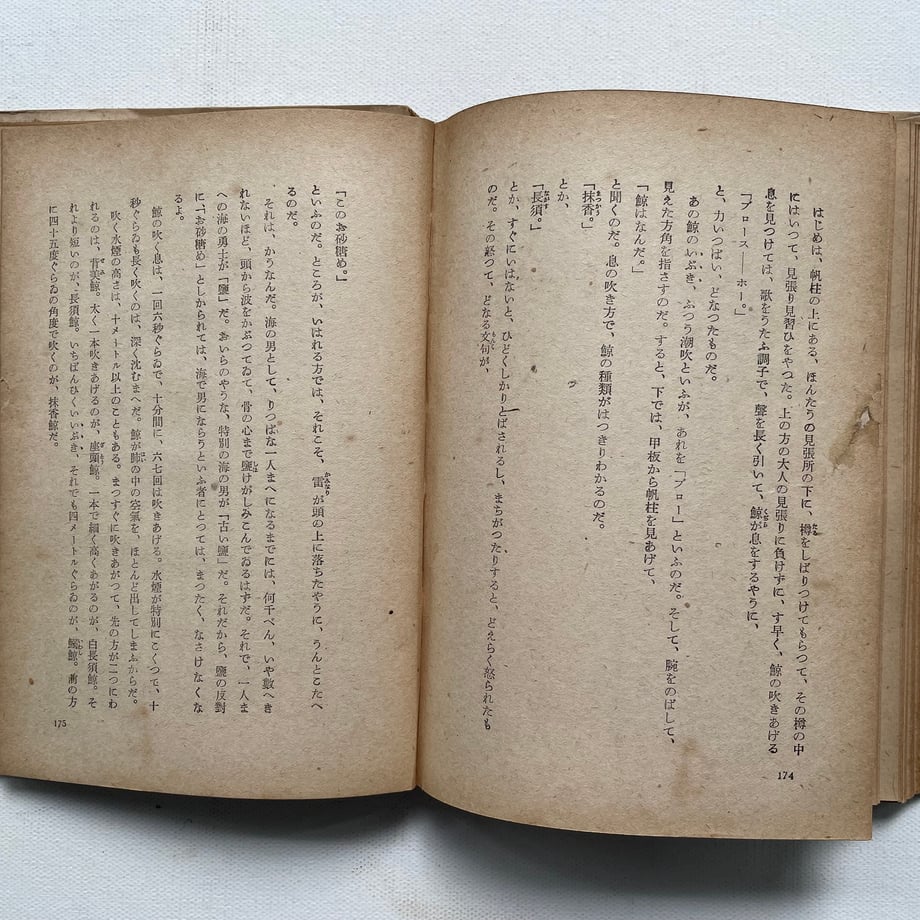 はじめは、帆柱の上にある、ほんたうの見張所の下に、樽をしばりつけてもらつて、その樽の中
にはいつて、見張り見習ひをやつた。上の方の大人の見張りに負けずに、す早く、鯨の吹きあげる
息を見つけては、歌をうたふ調子で、聲を長く引いて、鯨が息をするやうに、
「ブロース――ホー。」
と、力いつぱい、どなつたものだ。
あの鯨のいぶき、ふつう潮吹といふが、あれを「ブロー」といふのだ。そして、腕をのばして、
見えた方角を指さすのだ。すると、下では、甲板から帆柱を見あげて、
「鯨はなんだ。」
と聞くのだ。息の吹き方で、鯨の種類がはつきりわかるのだ。
「抹香。」
とか、
「長須。」
とか、すぐにいはないと、ひどくしかりとばされるし、まちがつたりすると、どえらく怒られたも
のだ。その怒つて、どなる文句が、
174
「このお砂糖め。」
といふのだ。ところが、いはれる方では、それこそ、雷が頭の上に落ちたやうに、うんとこたへ
るのだ。
それは、かうなんだ。海の男として、りつぱな一人まへになるまでには、何千べん、いや數へき
れないほど、頭から波をかぶつてゐて、骨の心まで鹽けがしみこんでゐるはずだ。それで、一人ま
への海の勇士が「鹽」だ。おいらのやうな、特別の海の男が「古い鹽」だ。それだから、鹽の反對
に、「お砂糖め」としかられては、海で男にならうといふ者にとつては、まつたく、なさけなくな
るよ。
鯨の吹く息は、一回六秒ぐらゐで、十分間に、六七回は吹きあげる。水煙が特別にこくつて、十
秒ぐらゐも長く吹くのは、深く沈むまへだ。鯨が肺の中の空氣を、ほとんど出してしまふからだ。
吹く水煙の高さは、十メートル以上のこともある。まつすぐに吹きあがつて、先の方が二つにわ
れるのは、背美鯨。太く一本吹きあげるのが、座頭鯨。一本で細く高くあがるのが、白長須鯨。そ
れより短いのが、長須鯨。いちばんひくいいぶき、それでも四メートルぐらゐのが、鰮鯨。前の方
に四十五度ぐらゐの角度で吹くのが、抹香鯨だ。
175